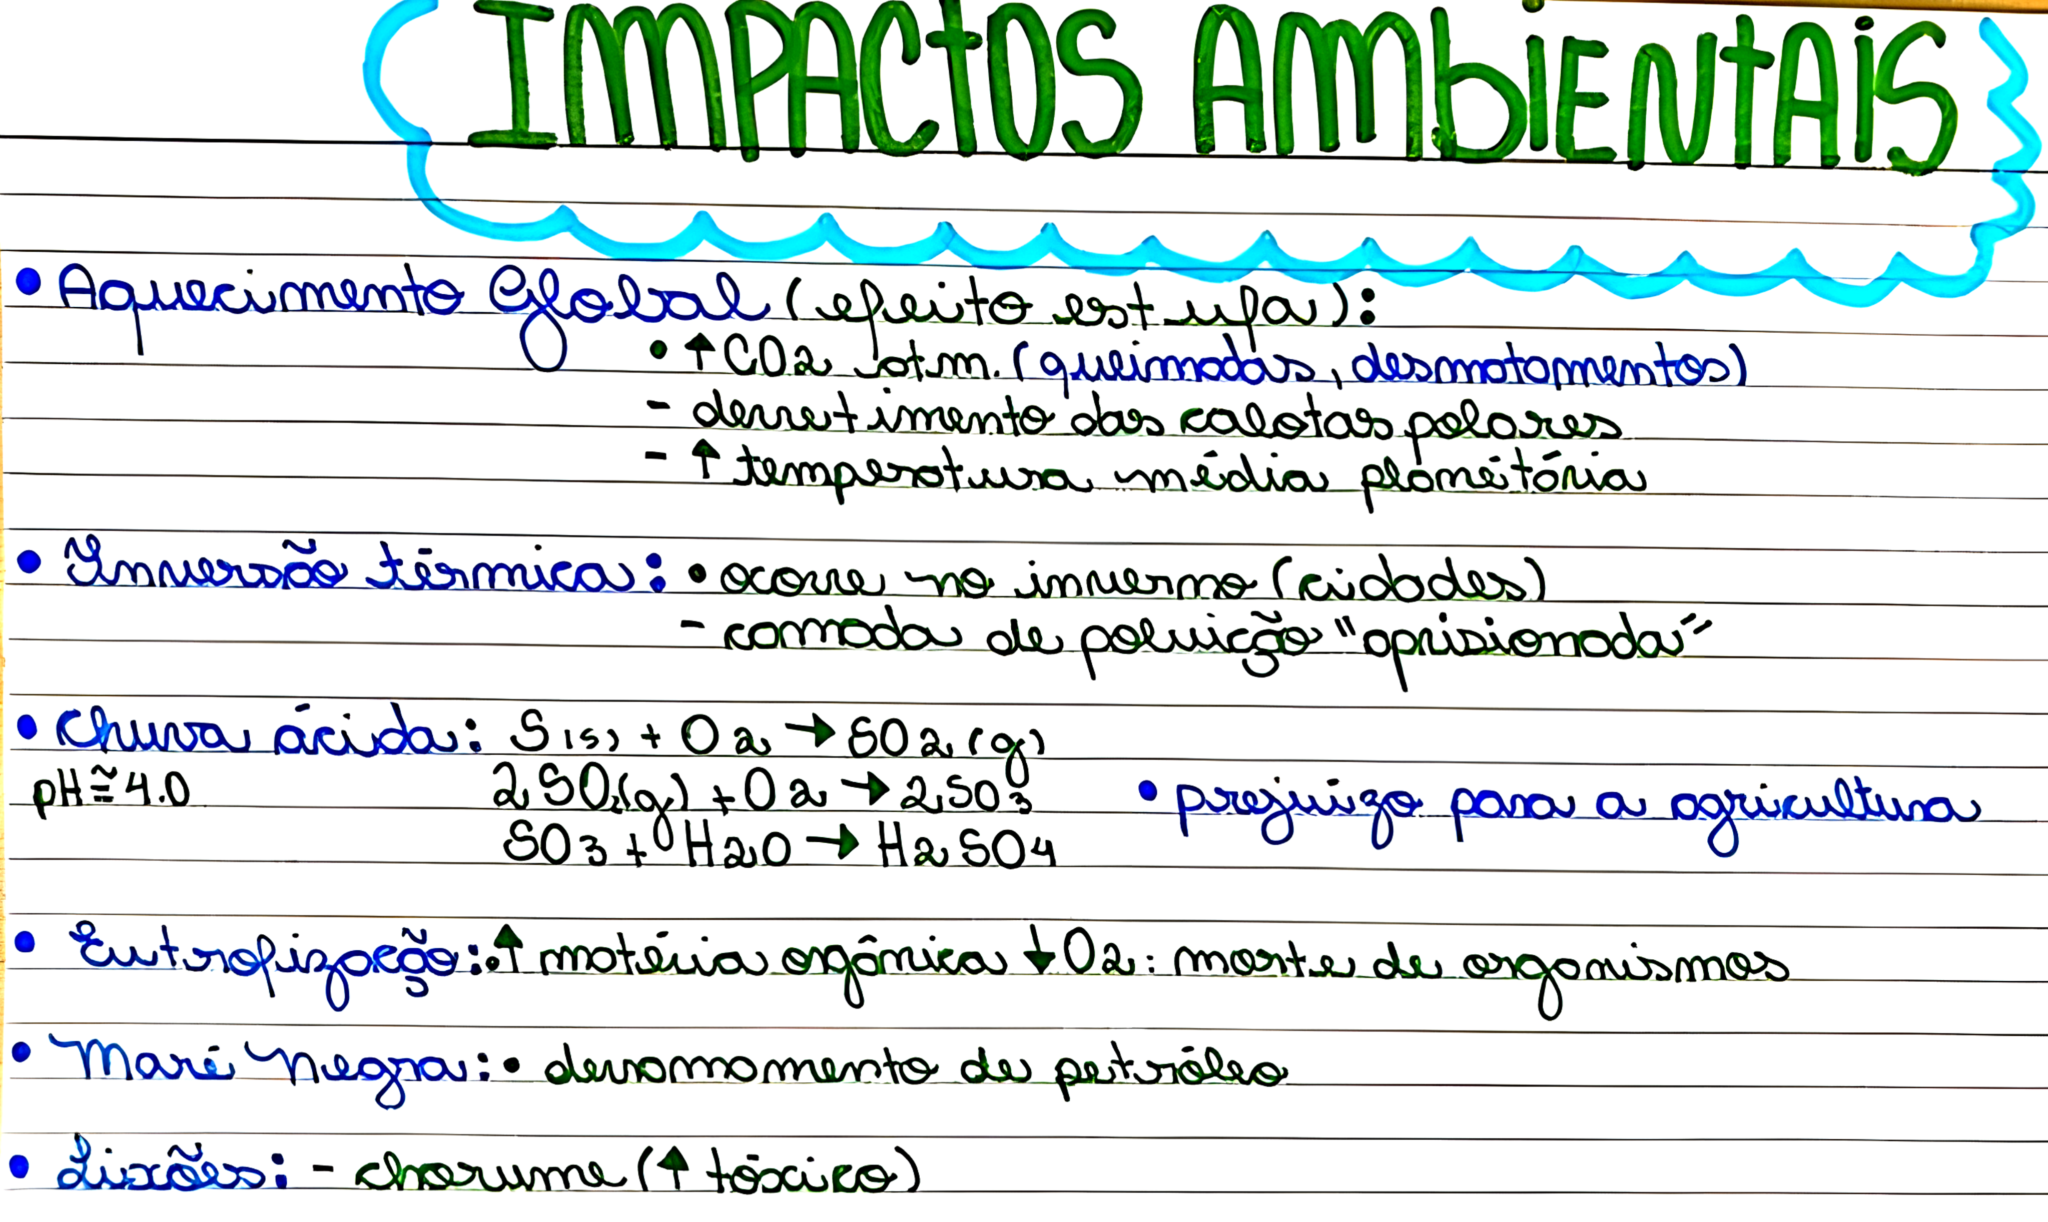 IMPACTOS AMBIENTAIS
• Aquecimento Global (efeito estufa):
• ↑ CO2 atm. (queimadas, desmatamentos)
- derretimento das calotas polares
- ↑ temperatura média planetária
• Inversão térmica: • ocorre no inverno (cidades)
- camada de poluição "aprisionada"
• Chuva ácida: S(s) + O2 → SO2 (g)
pH ≅ 4.0 2SO2(g) + O2 → 2SO3 • prejuizo para a agricultura
SO3 + H2O → H2SO4
• Eutrofização: • ↑ matéria orgânica ↓ O2: morte de organismos
• Maré Negra: • derramamento de petróleo
• Lixões: - chorume (↑ tóxico)